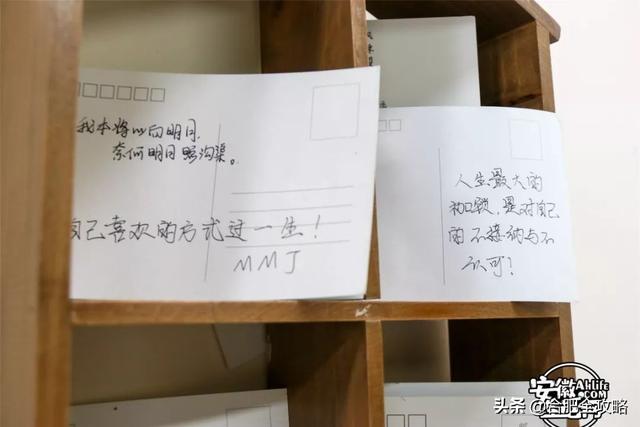 我本将心向明月,
奈何明月照沟渠。
自己喜欢的方式过一生!
MMJ
人生最大的
枷锁,是对自己
的不接纳与不
认可!
安徽
Ahlife.com
头条 @合肥全攻略